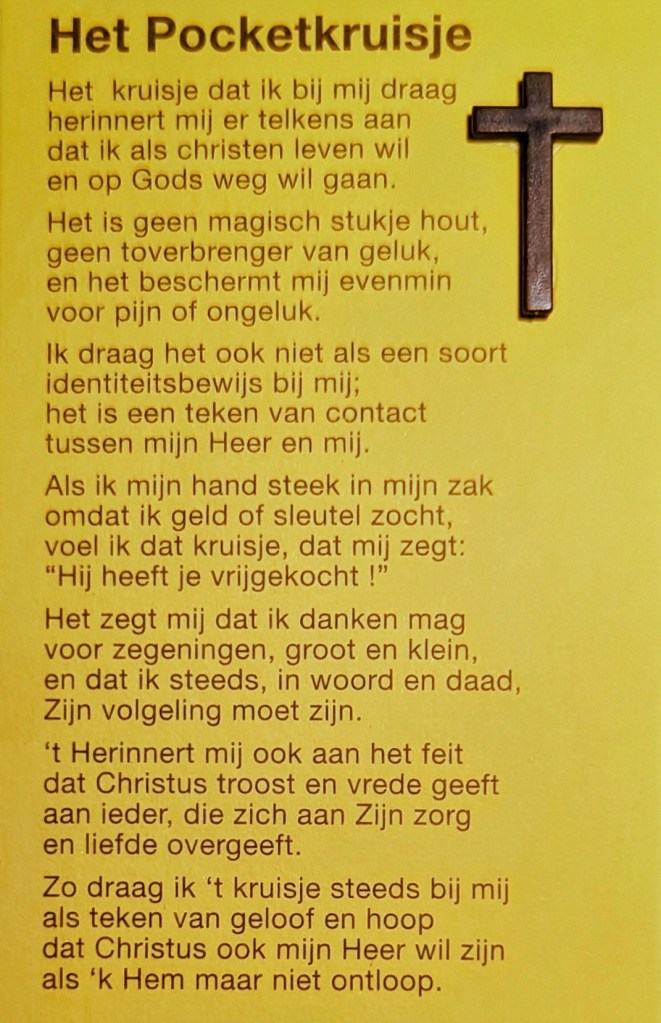 Het Pocketkruisje
Het kruisje dat ik bij mij draag
herinnert mij er telkens aan
dat ik als christen leven wil
en op Gods weg wil gaan.
Het is geen magisch stukje hout,
geen toverbrenger van geluk,
en het beschermt mij evenmin
voor pijn of ongeluk.
Ik draag het ook niet als een soort
identiteitsbewijs bij mij;
het is een teken van contact
tussen mijn Heer en mij.
Als ik mijn hand steek in mijn zak
omdat ik geld of sleutel zocht,
voel ik dat kruisje, dat mij zegt:
“Hij heeft je vrijgekocht !”
Het zegt mij dat ik danken mag
voor zegeningen, groot en klein,
en dat ik steeds, in woord en daad,
Zijn volgeling moet zijn.
‘t Herinnert mij ook aan het feit
dat Christus troost en vrede geeft
aan ieder, die zich aan Zijn zorg
en liefde overgeeft.
Zo draag ik ‘t kruisje steeds bij mij
als teken van geloof en hoop
dat Christus ook mijn Heer wil zijn
als ‘k Hem maar niet ontloop.